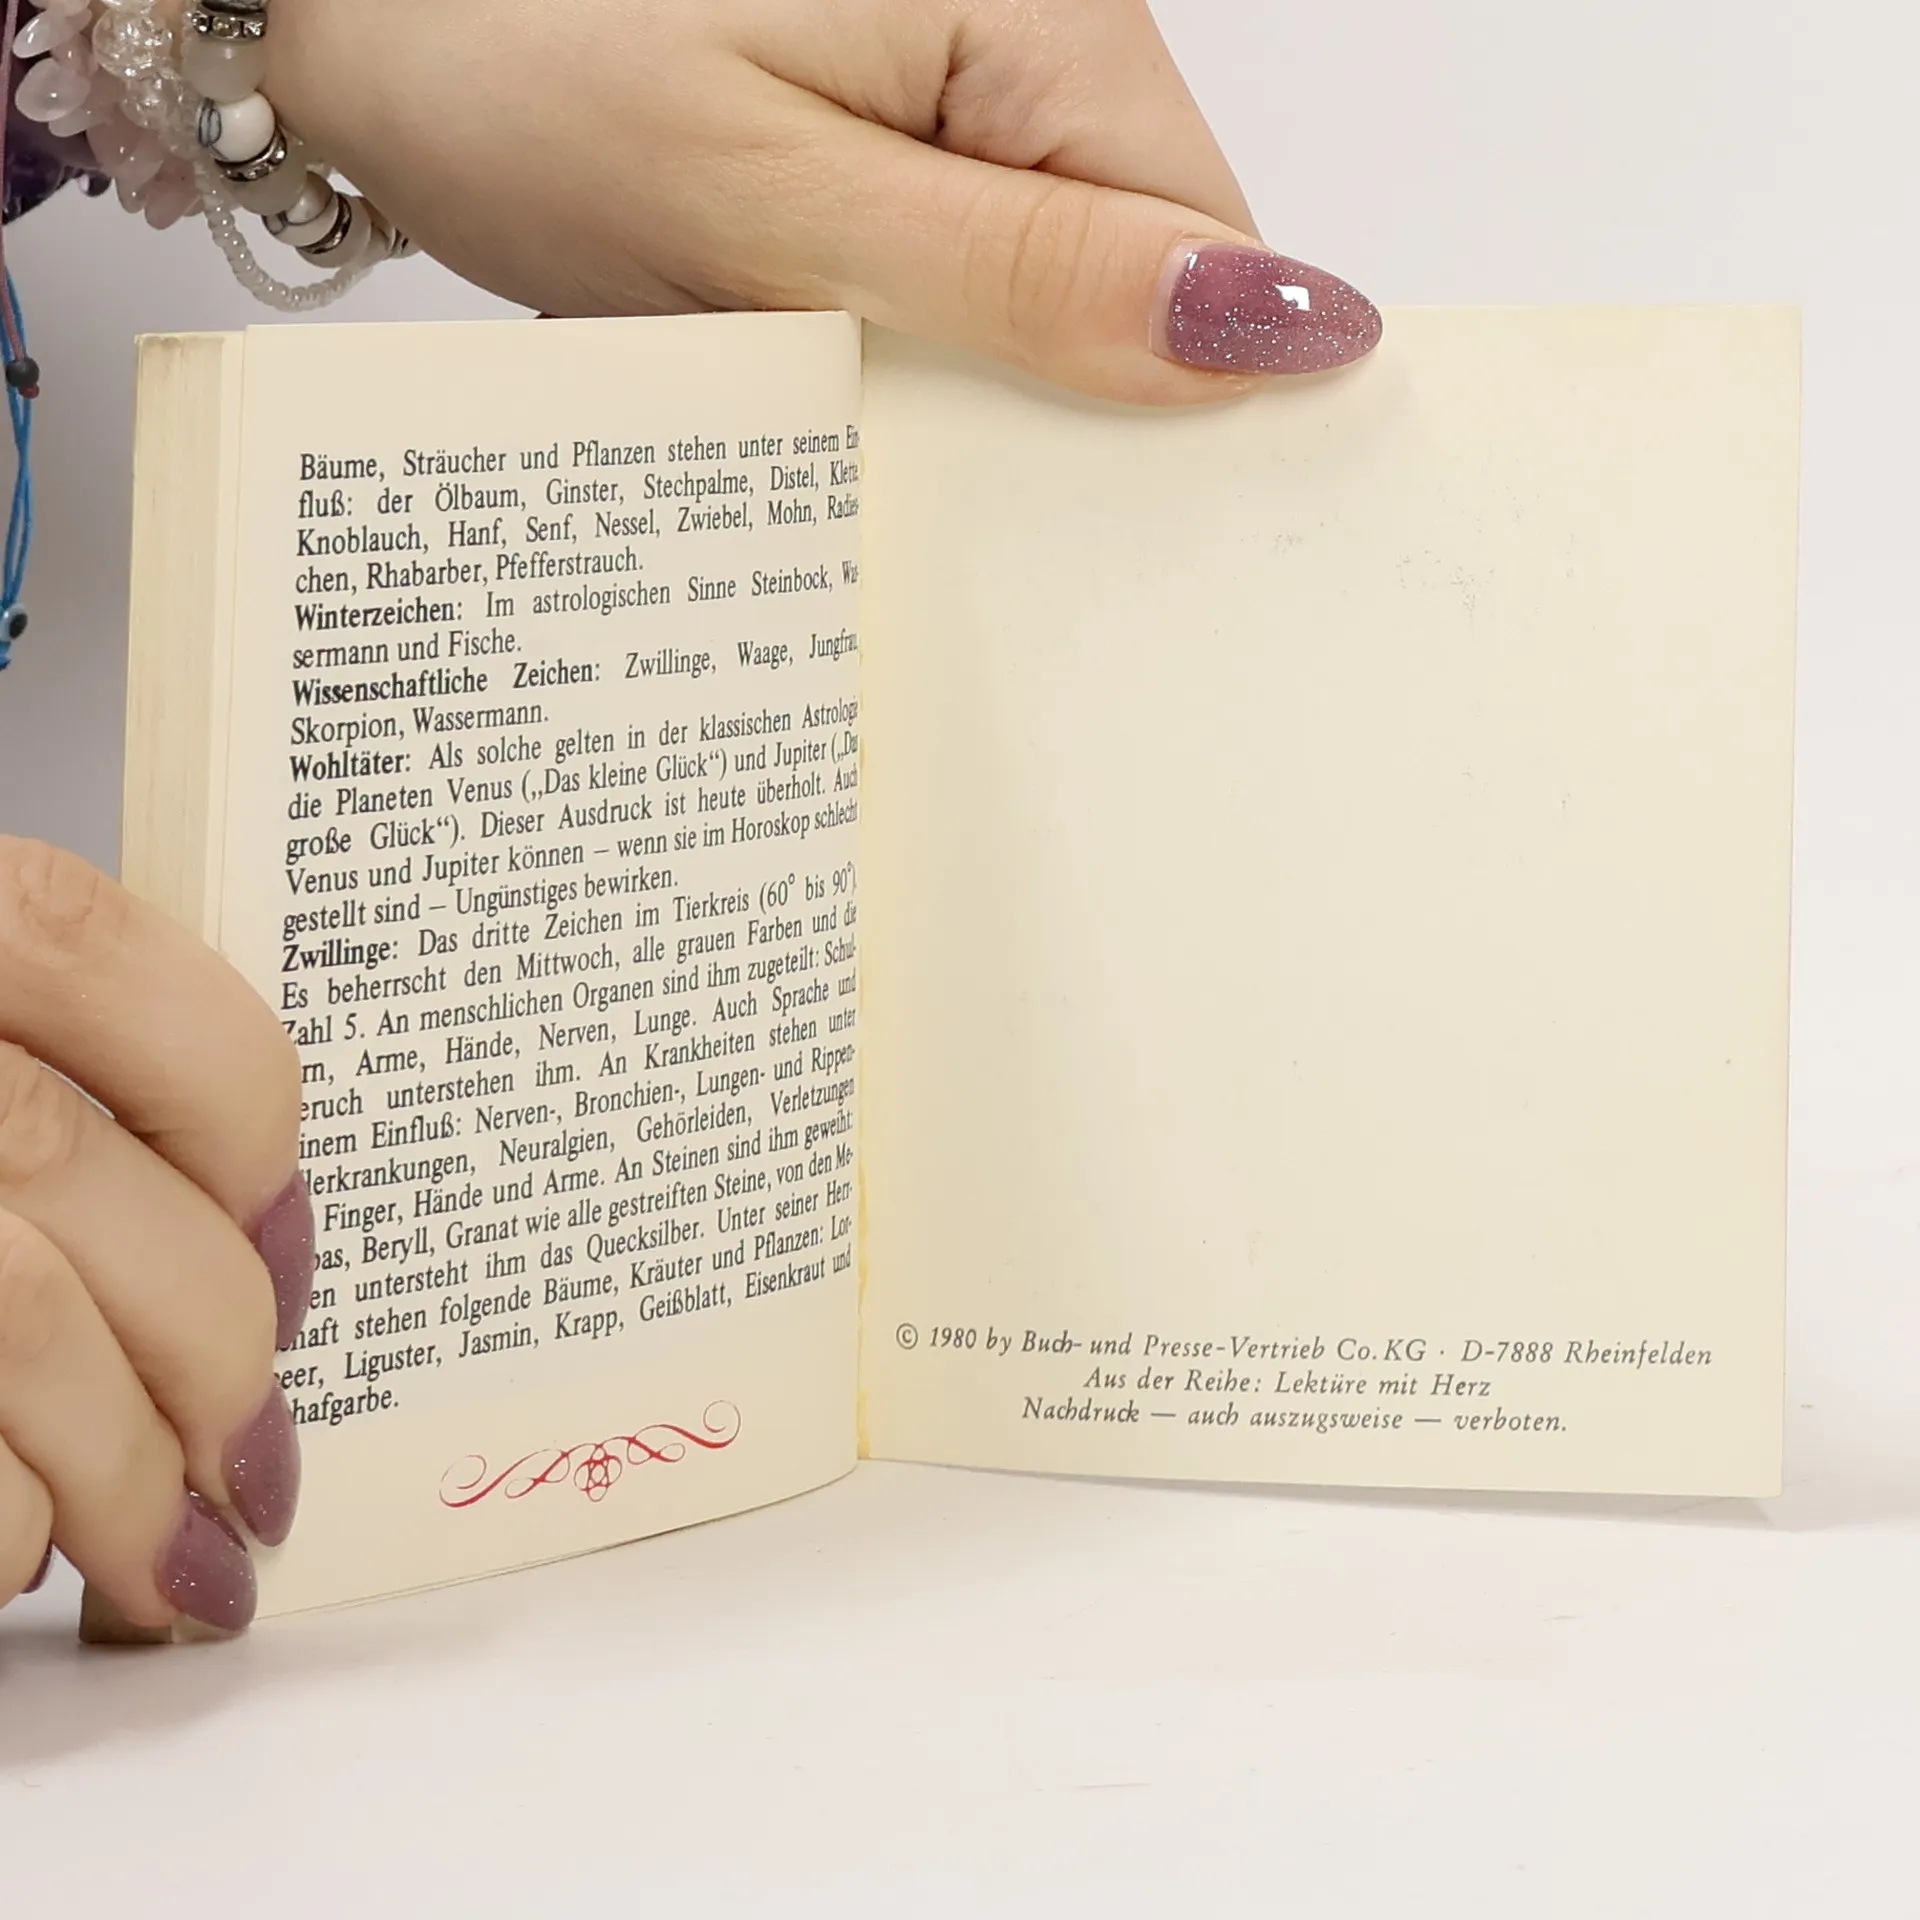 Bäume, Sträucher und Pflanzen stehen unter seinem Ein-
fluß: der Ölbaum, Ginster, Stechpalme, Distel, Klette,
Knoblauch, Hanf, Senf, Nessel, Zwiebel, Mohn, Radies-
chen, Rhabarber, Pfefferstrauch.
Winterzeichen: Im astrologischen Sinne Steinbock, Was-
sermann und Fische.
Wissenschaftliche Zeichen: Zwillinge, Waage, Jungfrau,
Skorpion, Wassermann.
Wohltäter: Als solche gelten in der klassischen Astrologie
die Planeten Venus („Das kleine Glück“) und Jupiter („Das
große Glück“). Dieser Ausdruck ist heute überholt. Auch
Venus und Jupiter können – wenn sie im Horoskop schlecht
gestellt sind – Ungünstiges bewirken.
Zwillinge: Das dritte Zeichen im Tierkreis (60° bis 90°).
Es beherrscht den Mittwoch, alle grauen Farben und die
Zahl 5. An menschlichen Organen sind ihm zugeteilt: Schul-
rn, Arme, Hände, Nerven, Lunge. Auch Sprache und
eruch unterstehen ihm. An Krankheiten stehen unter
inem Einfluß: Nerven-, Bronchien-, Lungen- und Rippen-
lerkrankungen, Neuralgien, Gehörleiden, Verletzungen
Finger, Hände und Arme. An Steinen sind ihm geweiht:
pas, Beryll, Granat wie alle gestreiften Steine, von den Me-
en untersteht ihm das Quecksilber. Unter seiner Herr-
haft stehen folgende Bäume, Kräuter und Pflanzen: Lor-
eer, Liguster, Jasmin, Krapp, Geißblatt, Eisenkraut und
hafgarbe.
© 1980 by Buch- und Presse-Vertrieb Co. KG · D-7888 Rheinfelden
Aus der Reihe: Lektüre mit Herz
Nachdruck — auch auszugsweise — verboten.